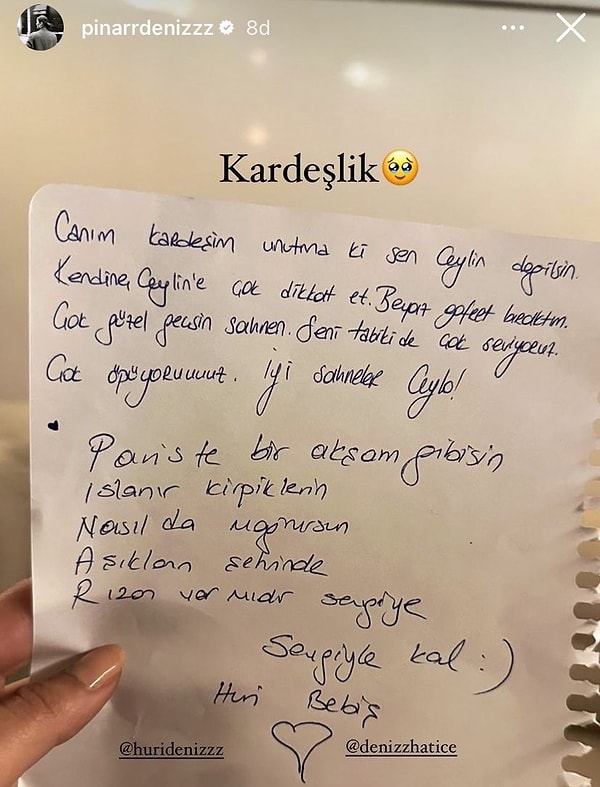 pinarrdenizzz 8d
Kardeşlik🥹
Canım kardeşim unutma ki sen Ceylin değilsin.
Kendine, Ceylin'e çok dikkat et. Beyaz gofret bıraktım.
Çok güzel geçsin sahnen. Seni tabiki de çok seviyoruz.
Çok öpüyoruuuuz. İyi sahneler Ceylo!
Paris te bir akşam gibisin
Islanır kirpiklerin
Nasıl da
Aşıkların şehrinde
Rızan var mıdır sevgiye
Sevgiyle kal :)
Huri Bebiş
@huridenizzz @denizzhatice